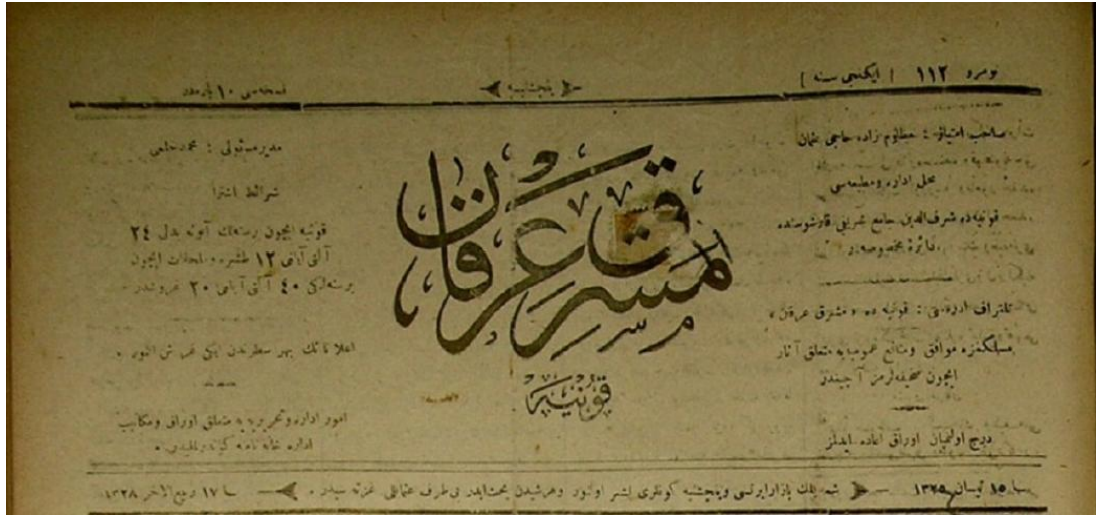 نومرو ١١٢ [ ايكنجى سنه ]
پنجشنبه
نسخه‌سى ١٠ پاره‌در
صاحب امتيازى : مظلوم زاده حاجى عثمان
محل اداره ومطبعه‌سى
قونيه‌ده شرف‌الدين جامع شريفى قارشوسنده
دائرۀ مخصوصه‌در
تلغراف آدره‌سى : قونيه ده « مشرق عرفان »
مسلكمزه موافق ومنافع عموميه‌يه متعلق آثار
ايچون صحيفه‌لرمز آچيقدر
درج اولنميان اوراق اعاده ايدلمز
مشرق عرفان
قونيه
مدير مسئولى : محمد
شرائط اشترا
قونيه ايچون برسنه‌لك آبونه بدلى ٢٤
آلتى آيلغى ١٢ طشره وملحقات ايچون
برسنه‌لكى ٤٠ آلتى آيلغى ٢٠ غروشدر
اعلاناتك بهر سطرندن ايكى غروش آلنور .
امور اداره وتحريريه‌يه متعلق اوراق ومكاتيب
اداره خانه نامنه كوندرلميدر .
١٥ نيسان ١٣٢٦
بازارايرتسى وپنجشنبه كونلرى نشر اولنور وهرشيدن بحث ايدر بى‌طرف عثمانلى غزته‌سيدر .
١٧ ربيع الاخر ١٣٢٨